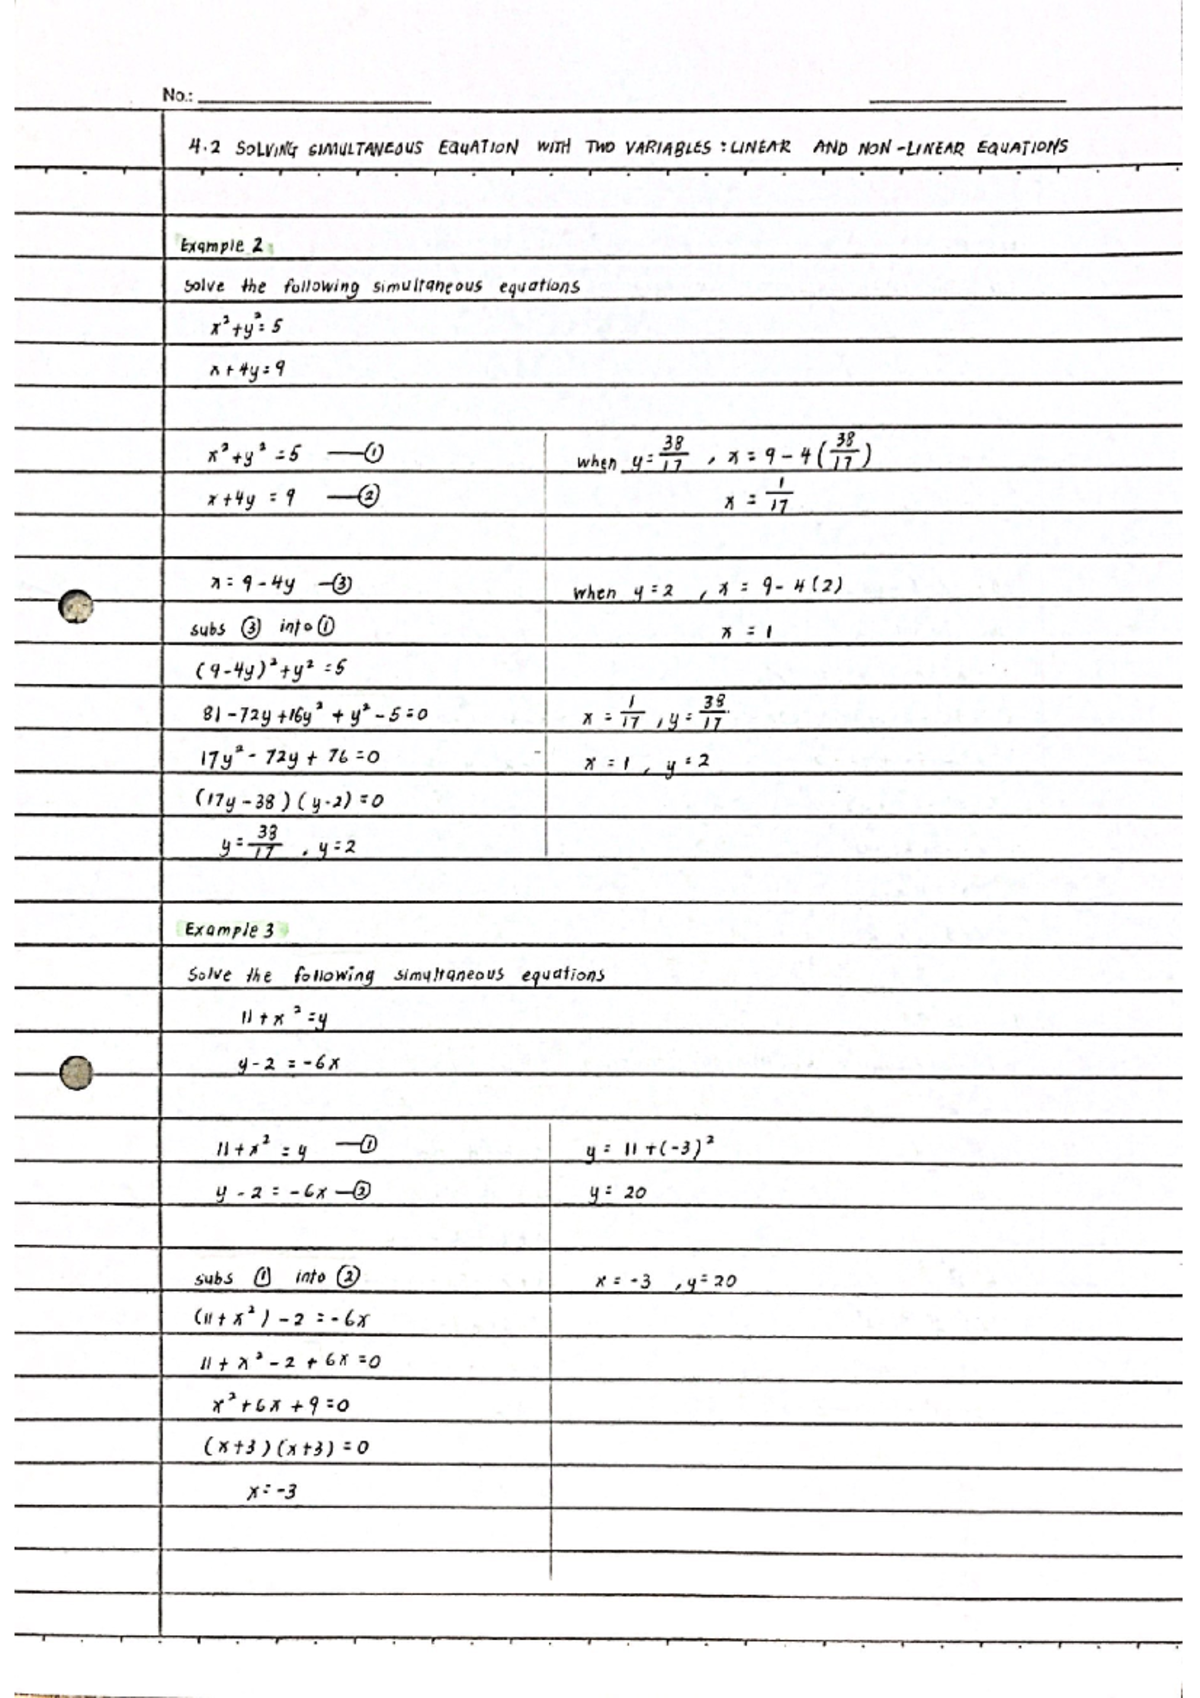 No.:
4.2 SOLVING SIMULTANEOUS EQUATION WITH TWO VARIABLES : LINEAR AND NON-LINEAR EQUATIONS
Example 2
Solve the following simultaneous equations
x² + y² = 5
x + 4y = 9
x² + y² = 5 —①
x + 4y = 9 —②
x = 9 - 4y —③
subs ③ into ①
(9-4y)² + y² = 5
81 - 72y + 16y² + y² - 5 = 0
17y² - 72y + 76 = 0
(17y - 38)(y - 2) = 0
y = 38/17 , y = 2
when y = 38/17 , x = 9 - 4(38/17)
x = 1/17
when y = 2 , x = 9 - 4(2)
x = 1
x = 1/17 , y = 38/17
x = 1 , y = 2
Example 3
Solve the following simultaneous equations
11 + x² = y
y - 2 = -6x
11 + x² = y —①
y - 2 = -6x —②
subs ① into ②
(11 + x²) - 2 = -6x
11 + x² - 2 + 6x = 0
x² + 6x + 9 = 0
(x+3)(x+3) = 0
x = -3
y = 11 + (-3)²
y = 20
x = -3 , y = 20